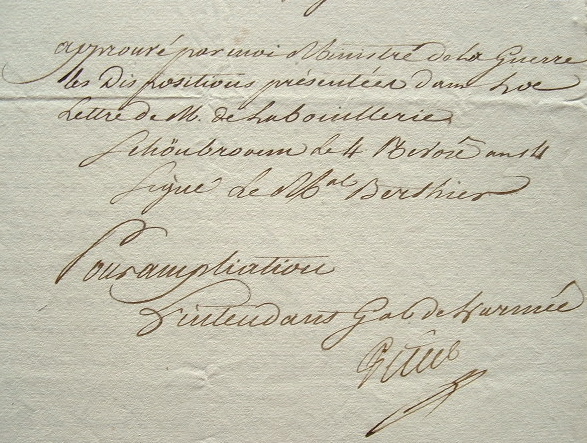 approuvé par moi Ministre de la Guerre
les Dispositions présentées dans
Lettre de M. de Labouillerie
Schönbroven Le 4 Nivose an 14
Signé Le Mal Berthier
Pour ampliation
L'intendant Gal de L'armée